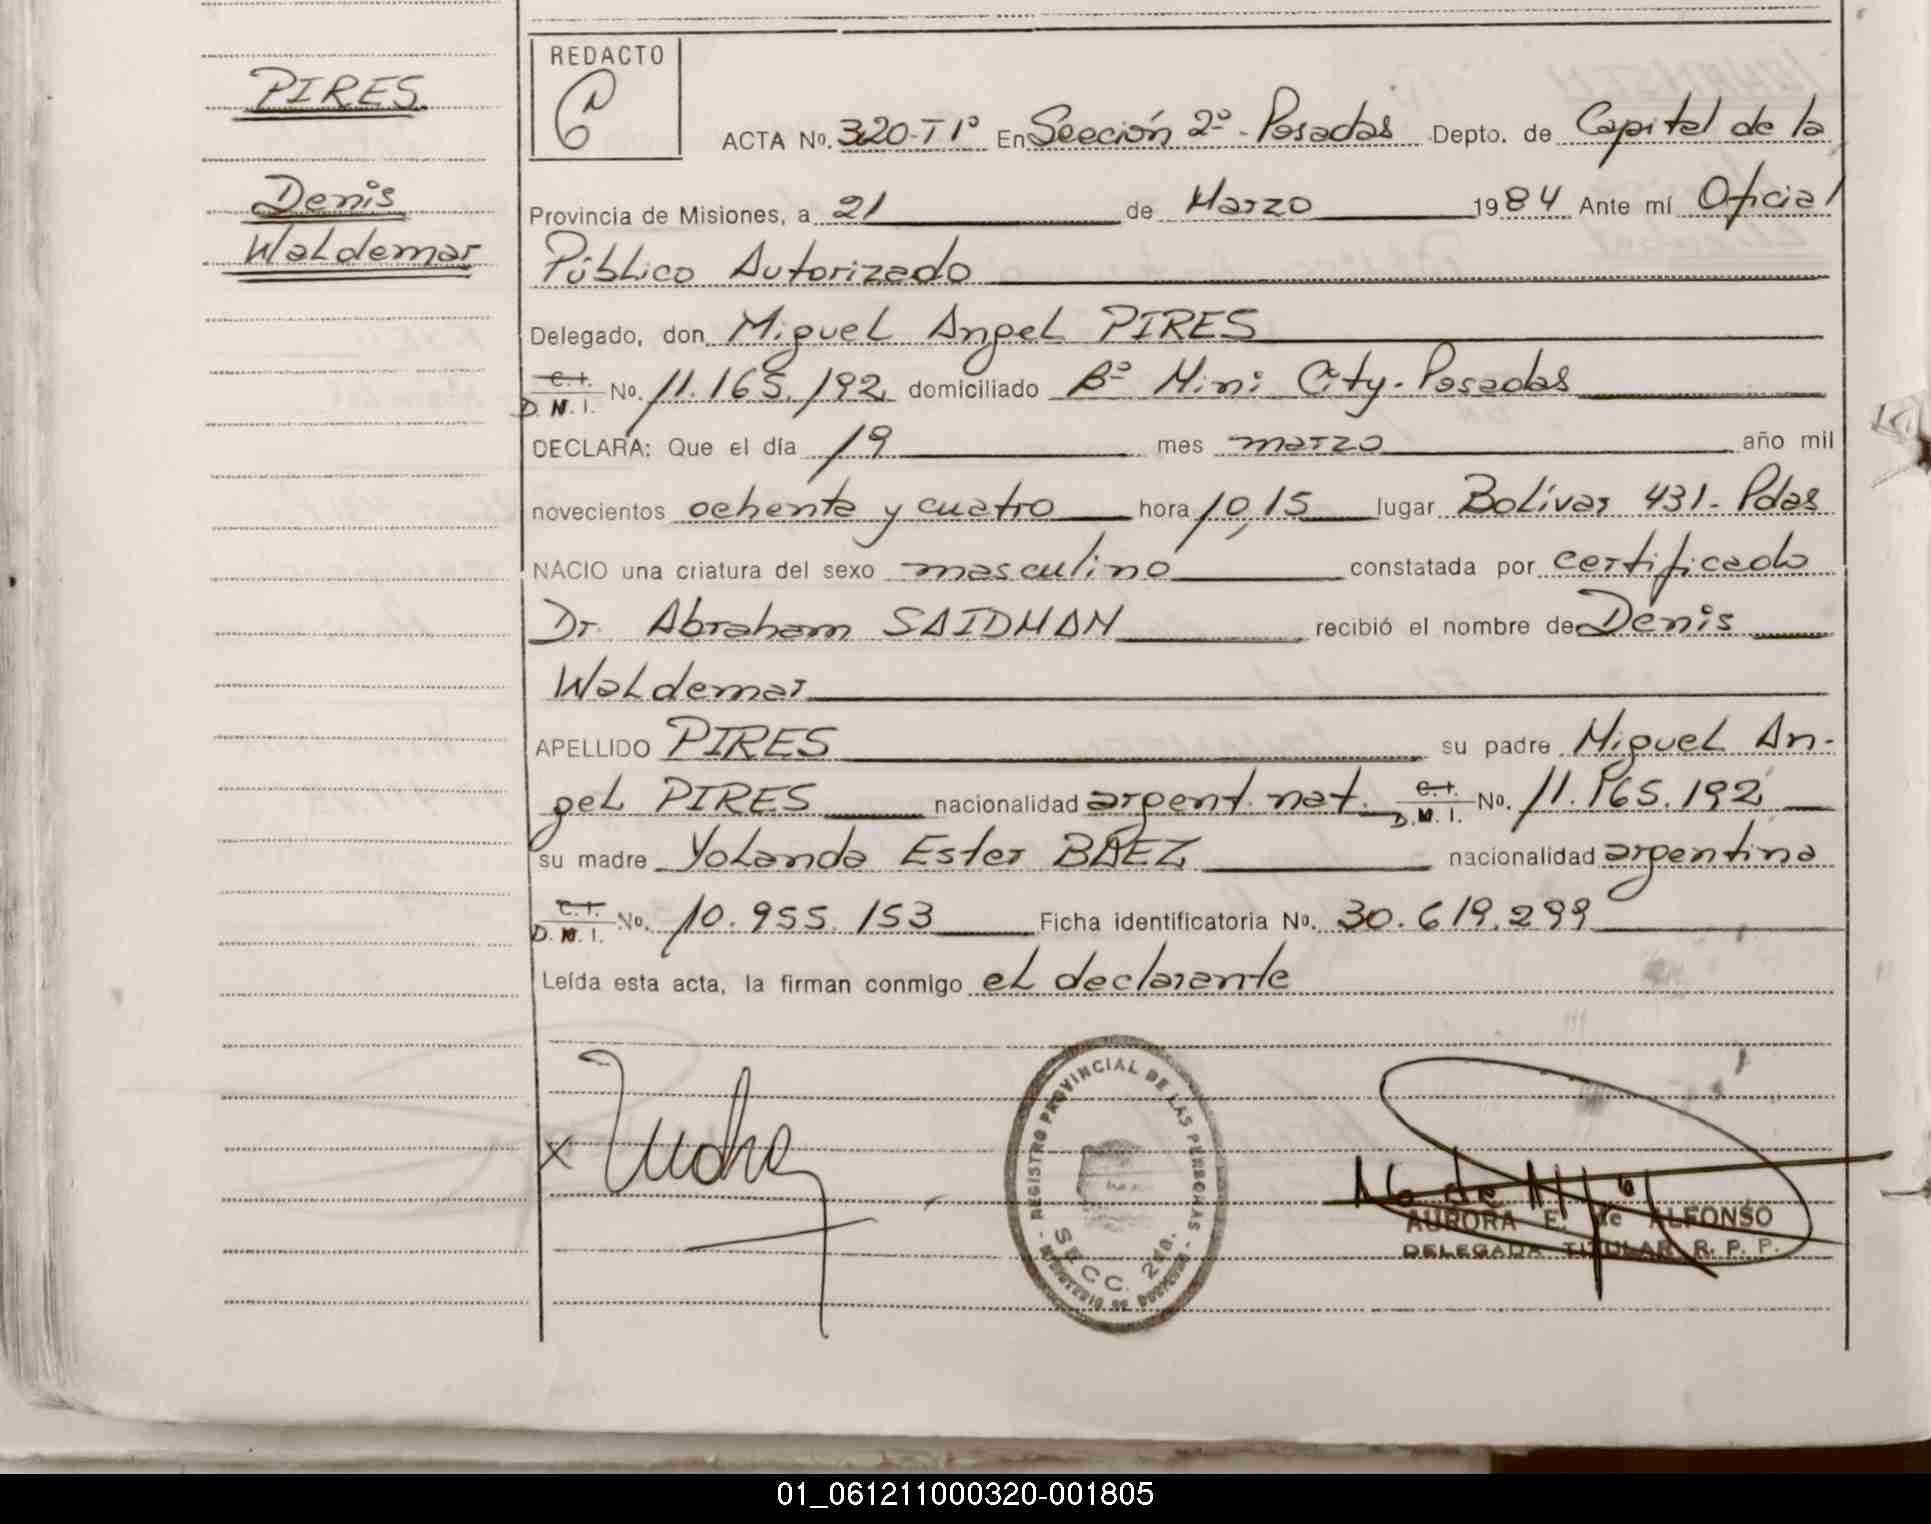 PIRES
Denis
Waldemar
REDACTO
ACTA No. 320-T1º En Sección 2º - Posadas Depto. de Capital de la
Provincia de Misiones, a 21 de Marzo 1984 Ante mí Oficial
Público Autorizado
Delegado, don Miguel Angel PIRES
C.I. D.N.I. No. 11.165.192 domiciliado Bº Mini City - Posadas
DECLARA: Que el día 19 mes marzo año mil
novecientos ochenta y cuatro hora 10,15 lugar Bolívar 431 - Pdas
NACIO una criatura del sexo masculino constatada por certificado
Dr. Abraham SAIDMAN recibió el nombre de Denis
Waldemar
APELLIDO PIRES su padre Miguel An-
gel PIRES nacionalidad argent. nat. C.I. D.N.I. No. 11.165.192
su madre Yolanda Ester BAEZ nacionalidad argentina
C.I. D.N.I. No. 10.955.153 Ficha identificatoria No. 30.619.299
Leída esta acta, la firman conmigo el declarante
X
REGISTRO PROVINCIAL DE LAS PERSONAS
SECC. 2da.
MINISTERIO DE GOBIERNO
AURORA E. de ALFONSO
DELEGADA TITULAR R. P. P.
01_061211000320-001805